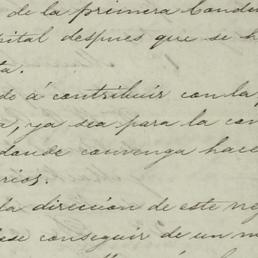 de la primera Conde
pital despues que se h
ta.
de á contribuir con la
a, ya sea para la con
donde convenga hace
rios.
la direccion de este ne
ese conseguir de un m